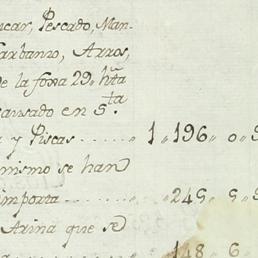 ucar, Pescado, Man-
Garbanzo, Arros,
de la foxa 29„ hta
causado en S.ta
a y Piscas ...... „ 1„ 196„ 0„
nismo se han
importa ........ „ 245„ 5„
Arina que se
148„ 6„